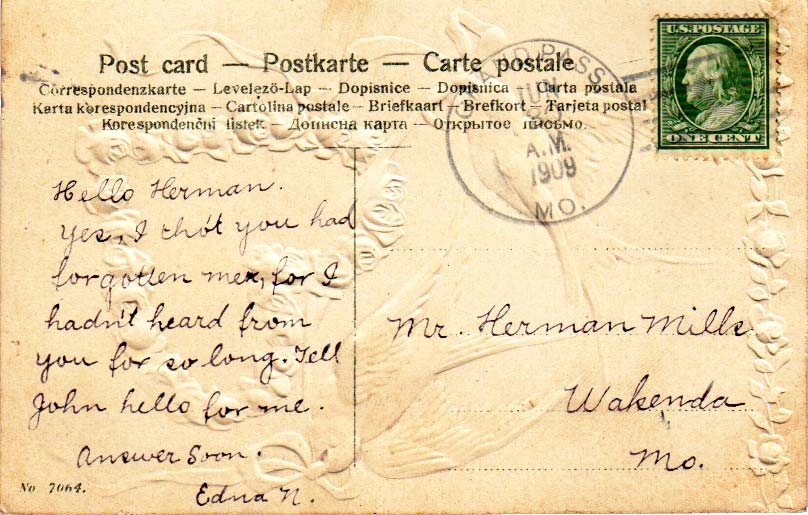 Post card — Postkarte — Carte postale
Correspondenzkarte – Levelezö-Lap – Dopisnice – Dopisnica – Carta postala
Karta korespondencyjna – Cartolina postale – Briefkaart – Brefkort – Tarjeta postal
Korespondenčni listek – Дописна карта – Открытое письмо.
U.S. POSTAGE
ONE CENT
GRAND PASS
JUN
A.M.
1909
MO.
Hello Herman.
Yes, I tho't you had
forgotten me, for I
hadn't heard from
you for so long. Tell
John hello for me.
Answer Soon.
Edna N.
Mr. Herman Mills
Wakenda
Mo.
No 7064.